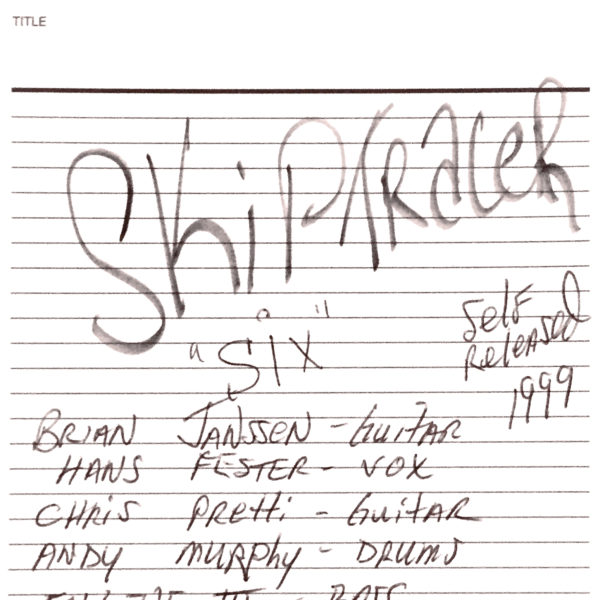 TITLE
Shiptracer
"Six"
Self
Released
1999
BRIAN JANSSEN - GUITAR
HANS FESTER - VOX
CHRIS PRETTI - GUITAR
ANDY MURPHY - DRUMS